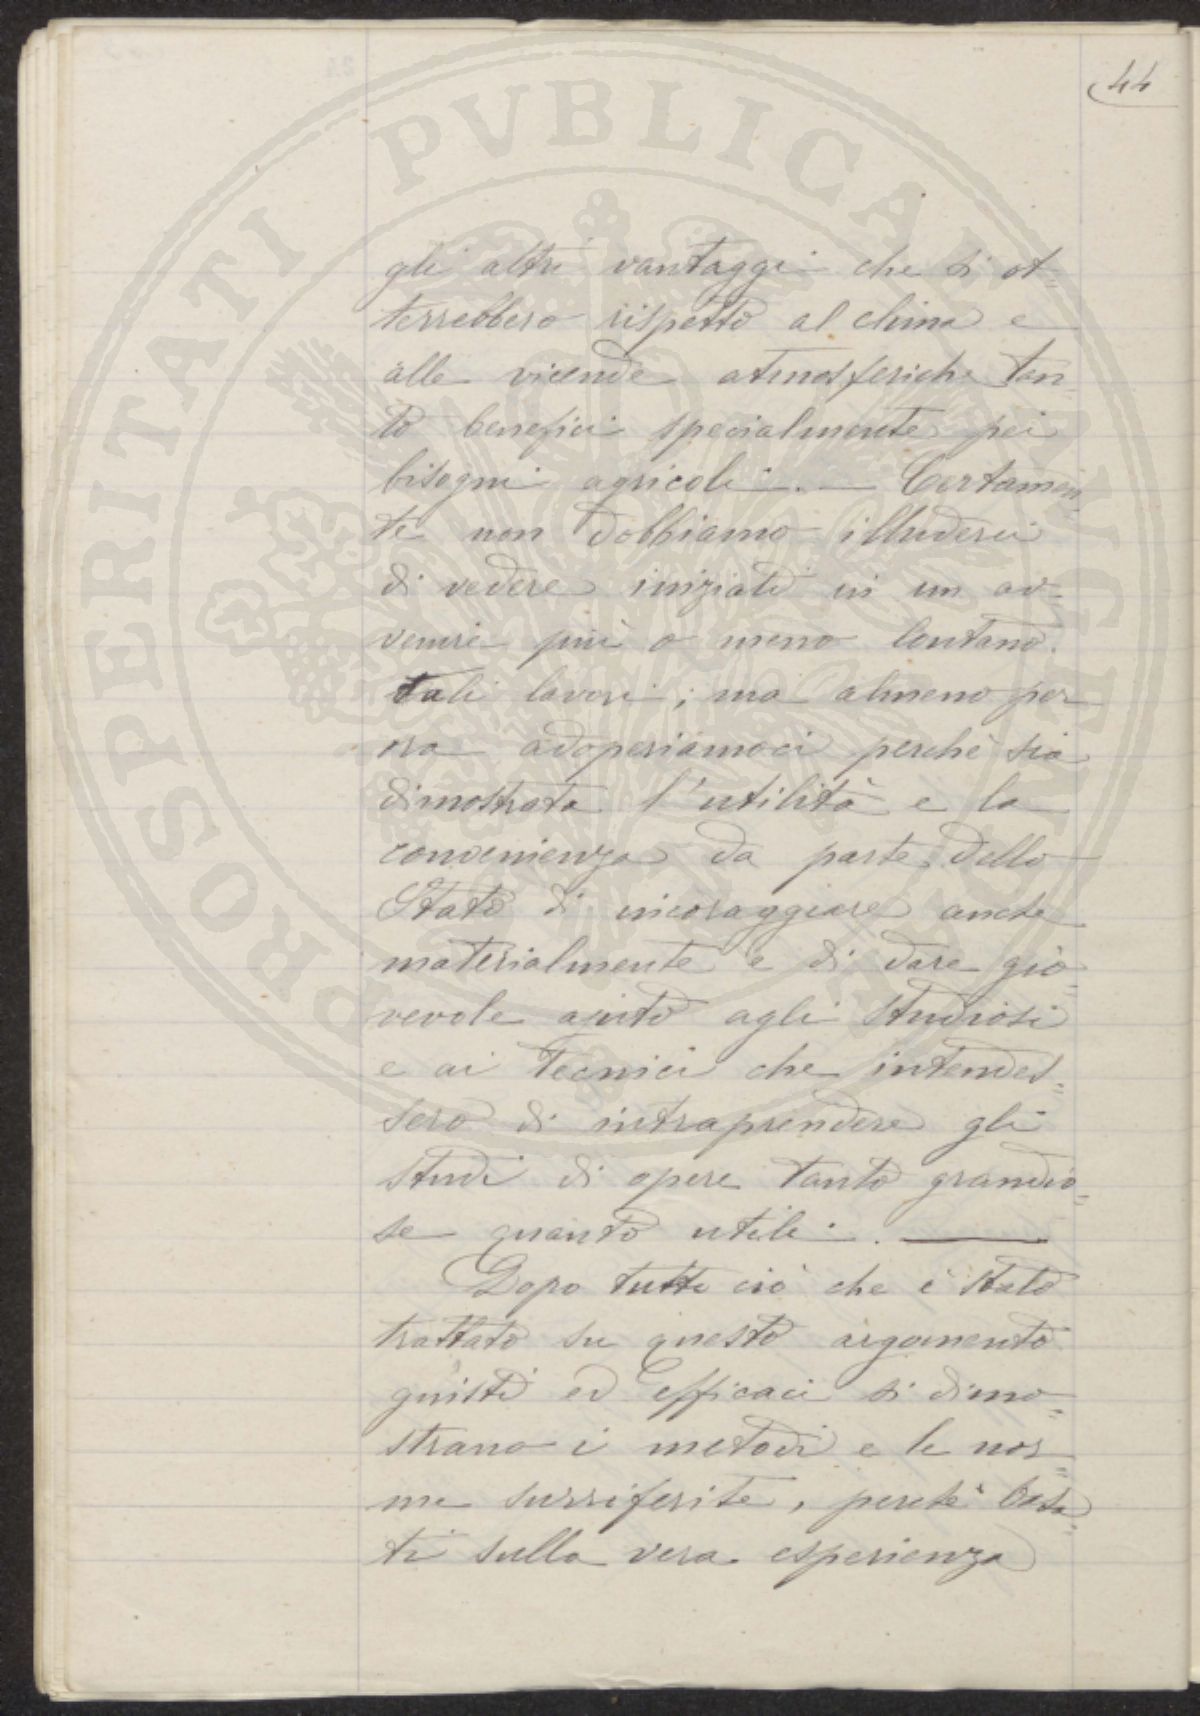 44
gli altri vantaggi che si ot=
terrebbero rispetto al clima e
alle vicende atmosferiche tan=
to benefici specialmente pei
bisogni agricoli. — Certamen=
te non dobbiamo illuderci
di vedere iniziati in un av=
venire più o meno lontano
tali lavori; ma almeno per
ora adoperiamoci perchè sia
dimostrata l'utilità e la
convenienza da parte dello
Stato di incoraggiare anche
materialmente e di dare gio=
vevole ajuto agli studiosi
e ai tecnici che intendes=
sero di intraprendere gli
studi di opere tanto grandio=
se quanto utili. —
Dopo tutto ciò che è stato
trattato su questo argomento
giusti ed efficaci si dimo=
strano i metodi e le nor=
me surriferite, perchè basa=
ti sulla vera esperienza
PROSPERITATI PVBLICAE AVGENDAE